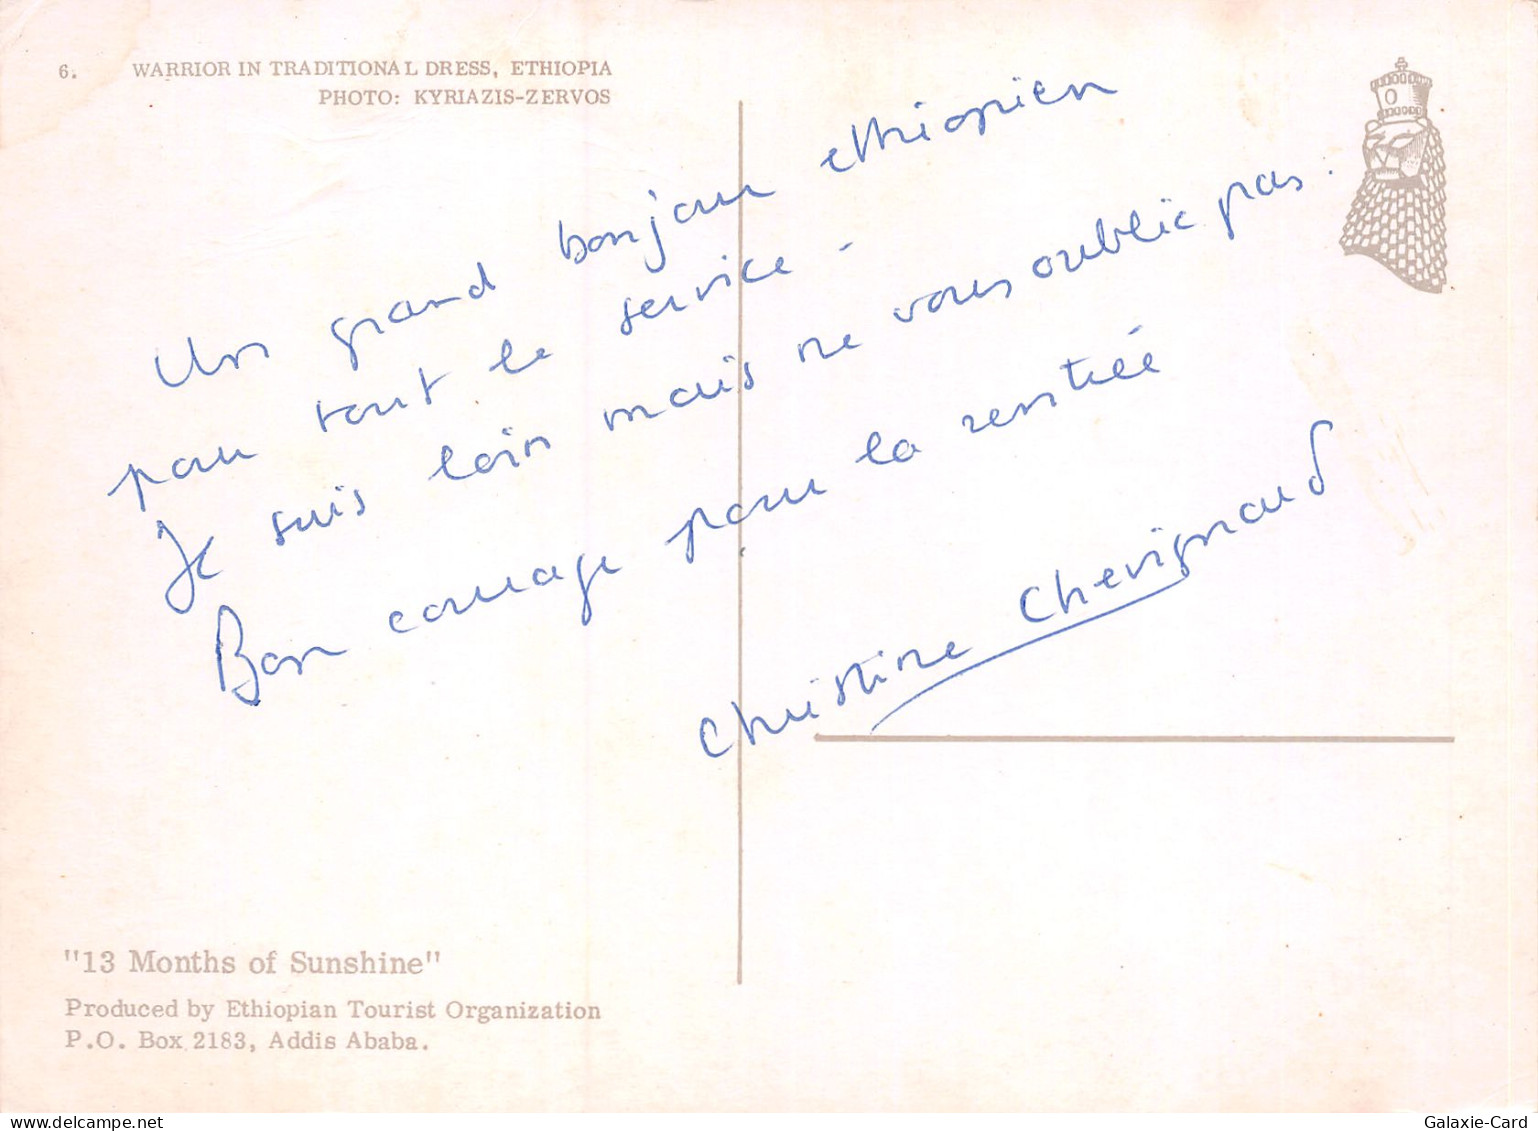 6. WARRIOR IN TRADITIONAL DRESS, ETHIOPIA
PHOTO: KYRIAZIS-ZERVOS
Un grand bonjour ethiopien
pour tout le service -
Je suis loin mais ne vous oublie pas.
Bon courage pour la rentrée
Christine Chevignaud
"13 Months of Sunshine"
Produced by Ethiopian Tourist Organization
P.O. Box 2183, Addis Ababa.
Galaxie-Card